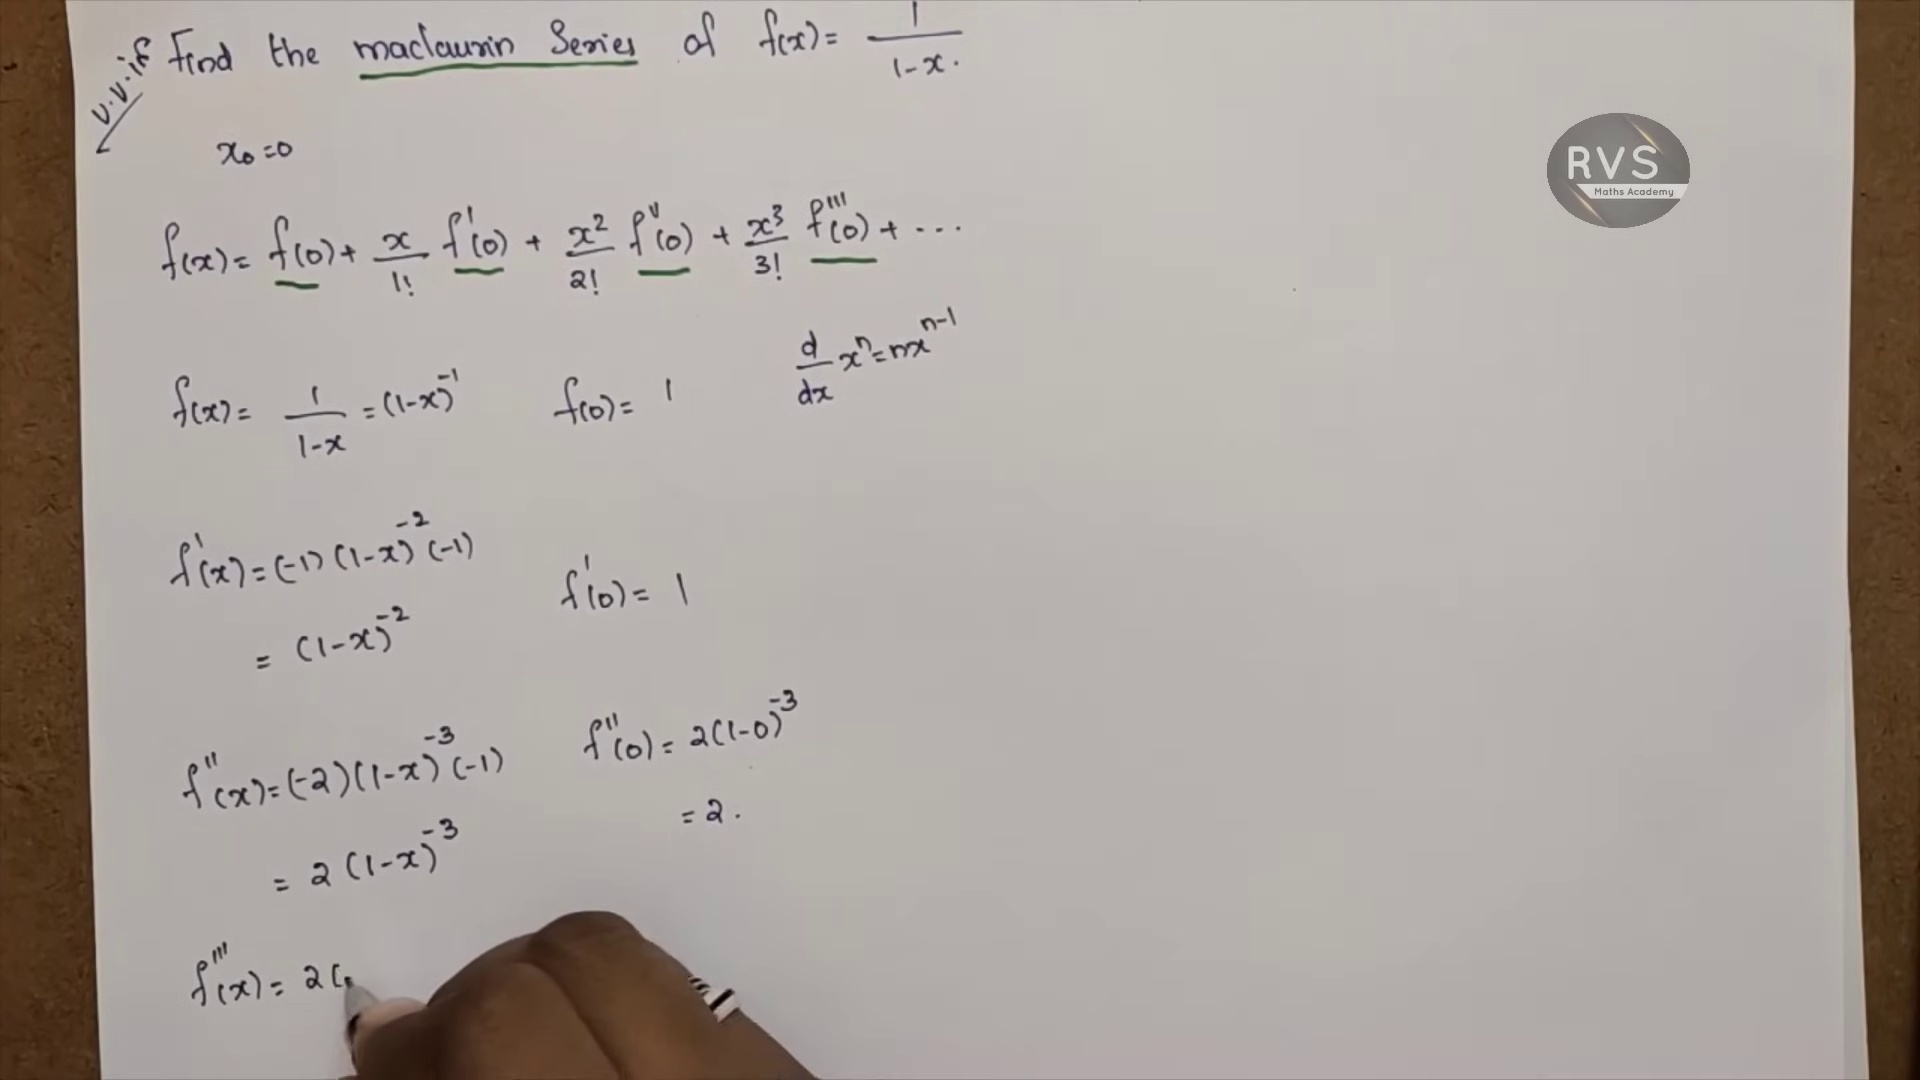 v.v.if Find the maclaurin Series of f(x) = 1/(1-x).
x₀ = 0
RVS
Maths Academy
f(x) = f(0) + x/1! f'(0) + x²/2! f''(0) + x³/3! f'''(0) + ...
d/dx xⁿ = nxⁿ⁻¹
f(x) = 1/(1-x) = (1-x)⁻¹ f(0) = 1
f'(x) = (-1)(1-x)⁻²(-1) f'(0) = 1
= (1-x)⁻²
f''(x) = (-2)(1-x)⁻³(-1) f''(0) = 2(1-0)⁻³
= 2(1-x)⁻³ = 2.
f'''(x) = 2(